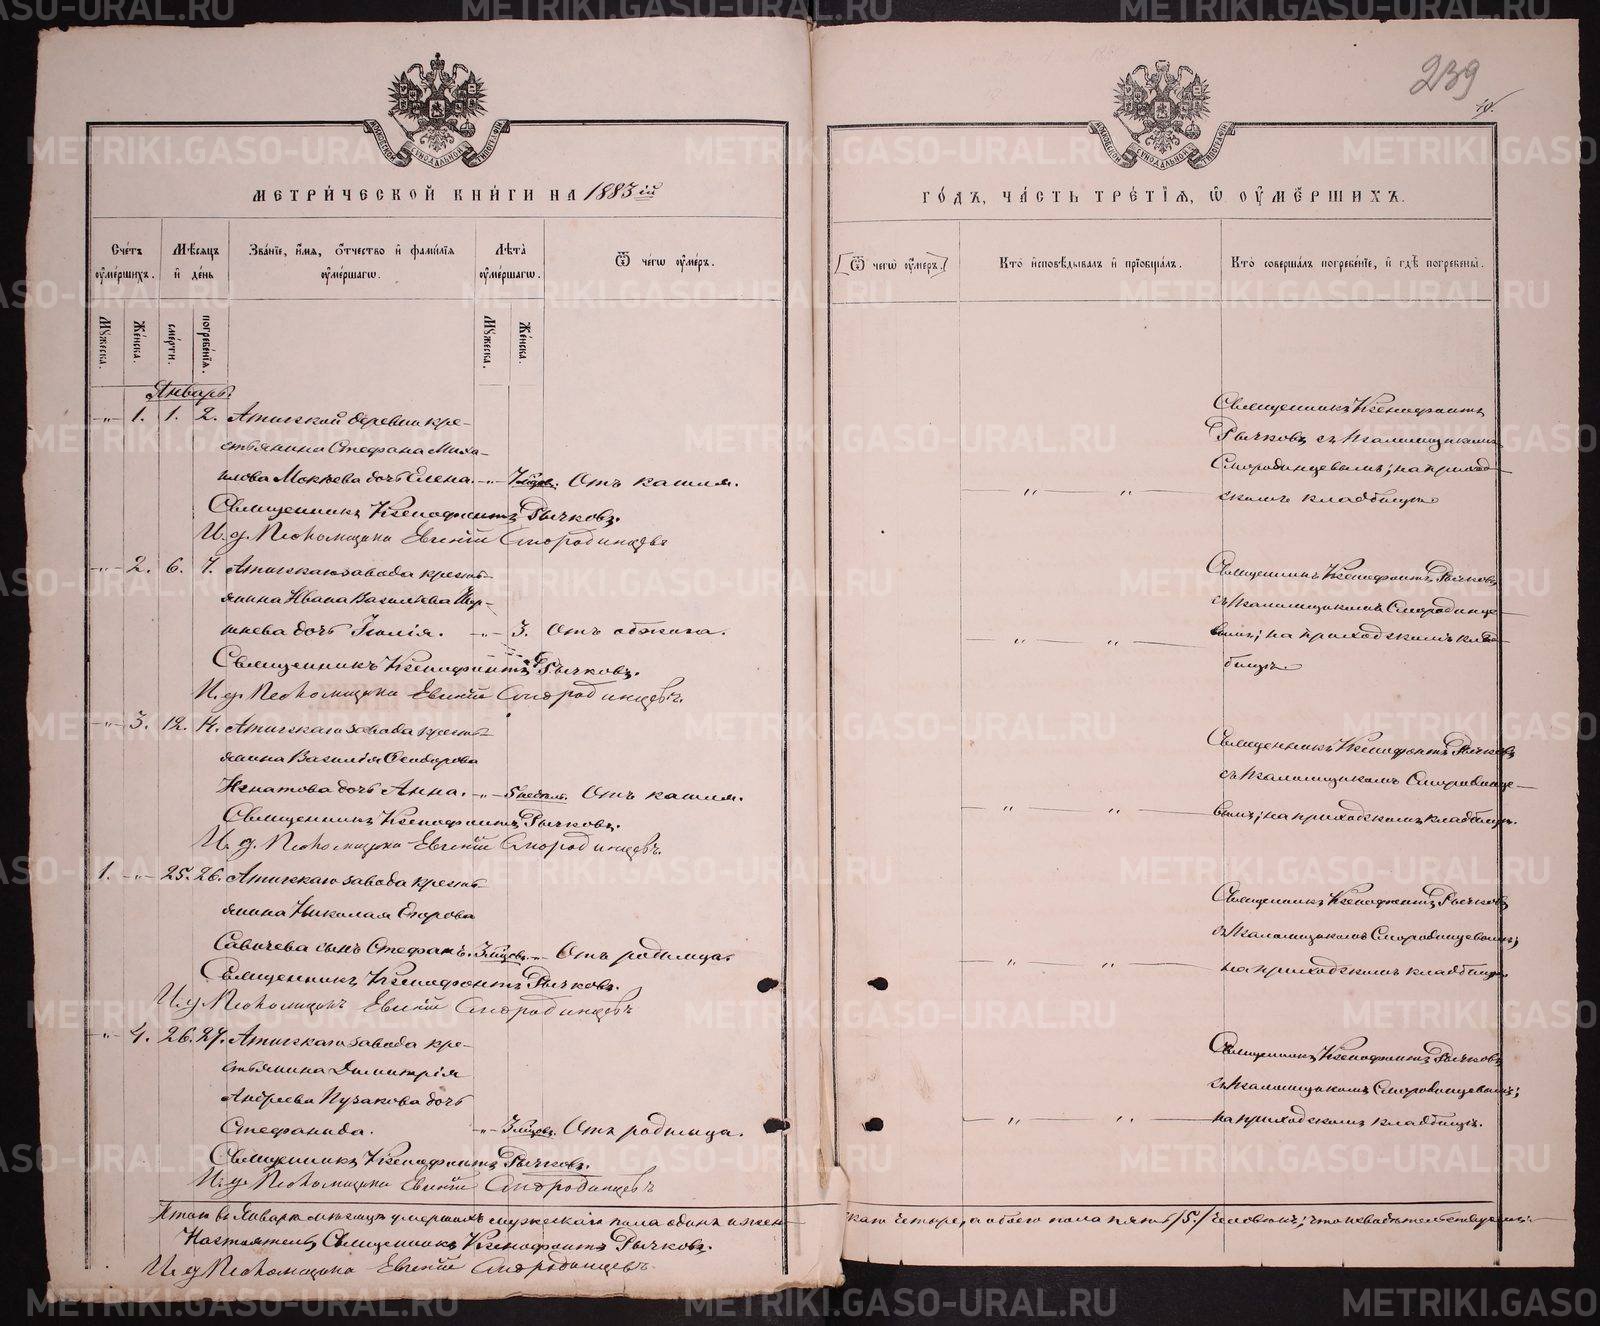 МЕТРИЧЕСКОЙ КНИГИ НА 1883 ій
ГОДЪ, ЧАСТЬ ТРЕТІЯ, Ѿ ОУМЕРШИХЪ.
239
Счетъ оумершихъ.
Мѣсяцъ и день
Званіе, имя, отчество и фамилія оумершагѡ.
Лѣта оумершагѡ.
Ѿ чегѡ оумеръ.
[Ѿ чегѡ оумеръ.]
Кто исповѣдывалъ и пріобщалъ.
Кто совершалъ погребеніе, и гдѣ погребены.
Мужеска.
Женска.
смерти.
погребенія.
Мужеска.
Женска.
Январь.
-„- 1. 1. 2. Атигской деревни кре-
стьянина Стефана Миха-
илова Мокѣева дочь Елена. -„- Отъ кашля.
Священникъ Ксенофонтъ Рычковъ.
И. д. Псаломщика Евгеній Смородинцевъ
Священникъ Ксенофонтъ
Рычковъ съ псаломщикомъ
Смородинцевымъ; на приход-
скомъ кладбищѣ
-„- 2. 6. 7. Атигскаго завода кресть-
янина Ивана Васильева
дочь Іулія. -„- 3. Отъ обжога.
Священникъ Ксенофонтъ Рычковъ.
И. д. Псаломщика Евгеній Смородинцевъ.
Священникъ Ксенофонтъ Рычковъ
съ псаломщикомъ Смородинце-
вымъ; на приходскомъ клад-
бищѣ
-„- 3. 12. 14. Атигскаго завода кресть-
янина Василія Ѳеодорова
Игнатова дочь Анна. -„- 5 недѣль. Отъ кашля.
Священникъ Ксенофонтъ Рычковъ.
И. д. Псаломщика Евгеній Смородинцевъ.
Священникъ Ксенофонтъ Рычковъ
съ псаломщикомъ Смородинце-
вымъ; на приходскомъ кладбищѣ.
1. -„- 25. 26. Атигскаго завода кресть-
янина Николая Егорова
Савичева сынъ Стефанъ. 3 мѣсяц. -„- Отъ родимца.
Священникъ Ксенофонтъ Рычковъ.
И. д. Псаломщика Евгеній Смородинцевъ
Священникъ Ксенофонтъ Рычковъ
съ псаломщикомъ Смородинцевымъ;
на приходскомъ кладбищѣ.
-„- 4. 26. 27. Атигскаго завода кре-
стьянина Димитрія
Андреева Пузакова дочь
Стефанида. -„- 3 мѣсяц. Отъ родимца.
Священникъ Ксенофонтъ Рычковъ.
И. д. Псаломщика Евгеній Смородинцевъ
Священникъ Ксенофонтъ Рычковъ
съ псаломщикомъ Смородинцевымъ;
на приходскомъ кладбищѣ.
Итого въ Январѣ мѣсяцѣ умершихъ мужескаго пола одинъ и жен-
скаго четыре, а обоего пола пять /5./ человѣкъ; что и свидѣтельствуемъ:
Настоятель Священникъ Ксенофонтъ Рычковъ.
И. д. Псаломщика Евгеній Смородинцевъ.
METRIKI.GASO-URAL.RU